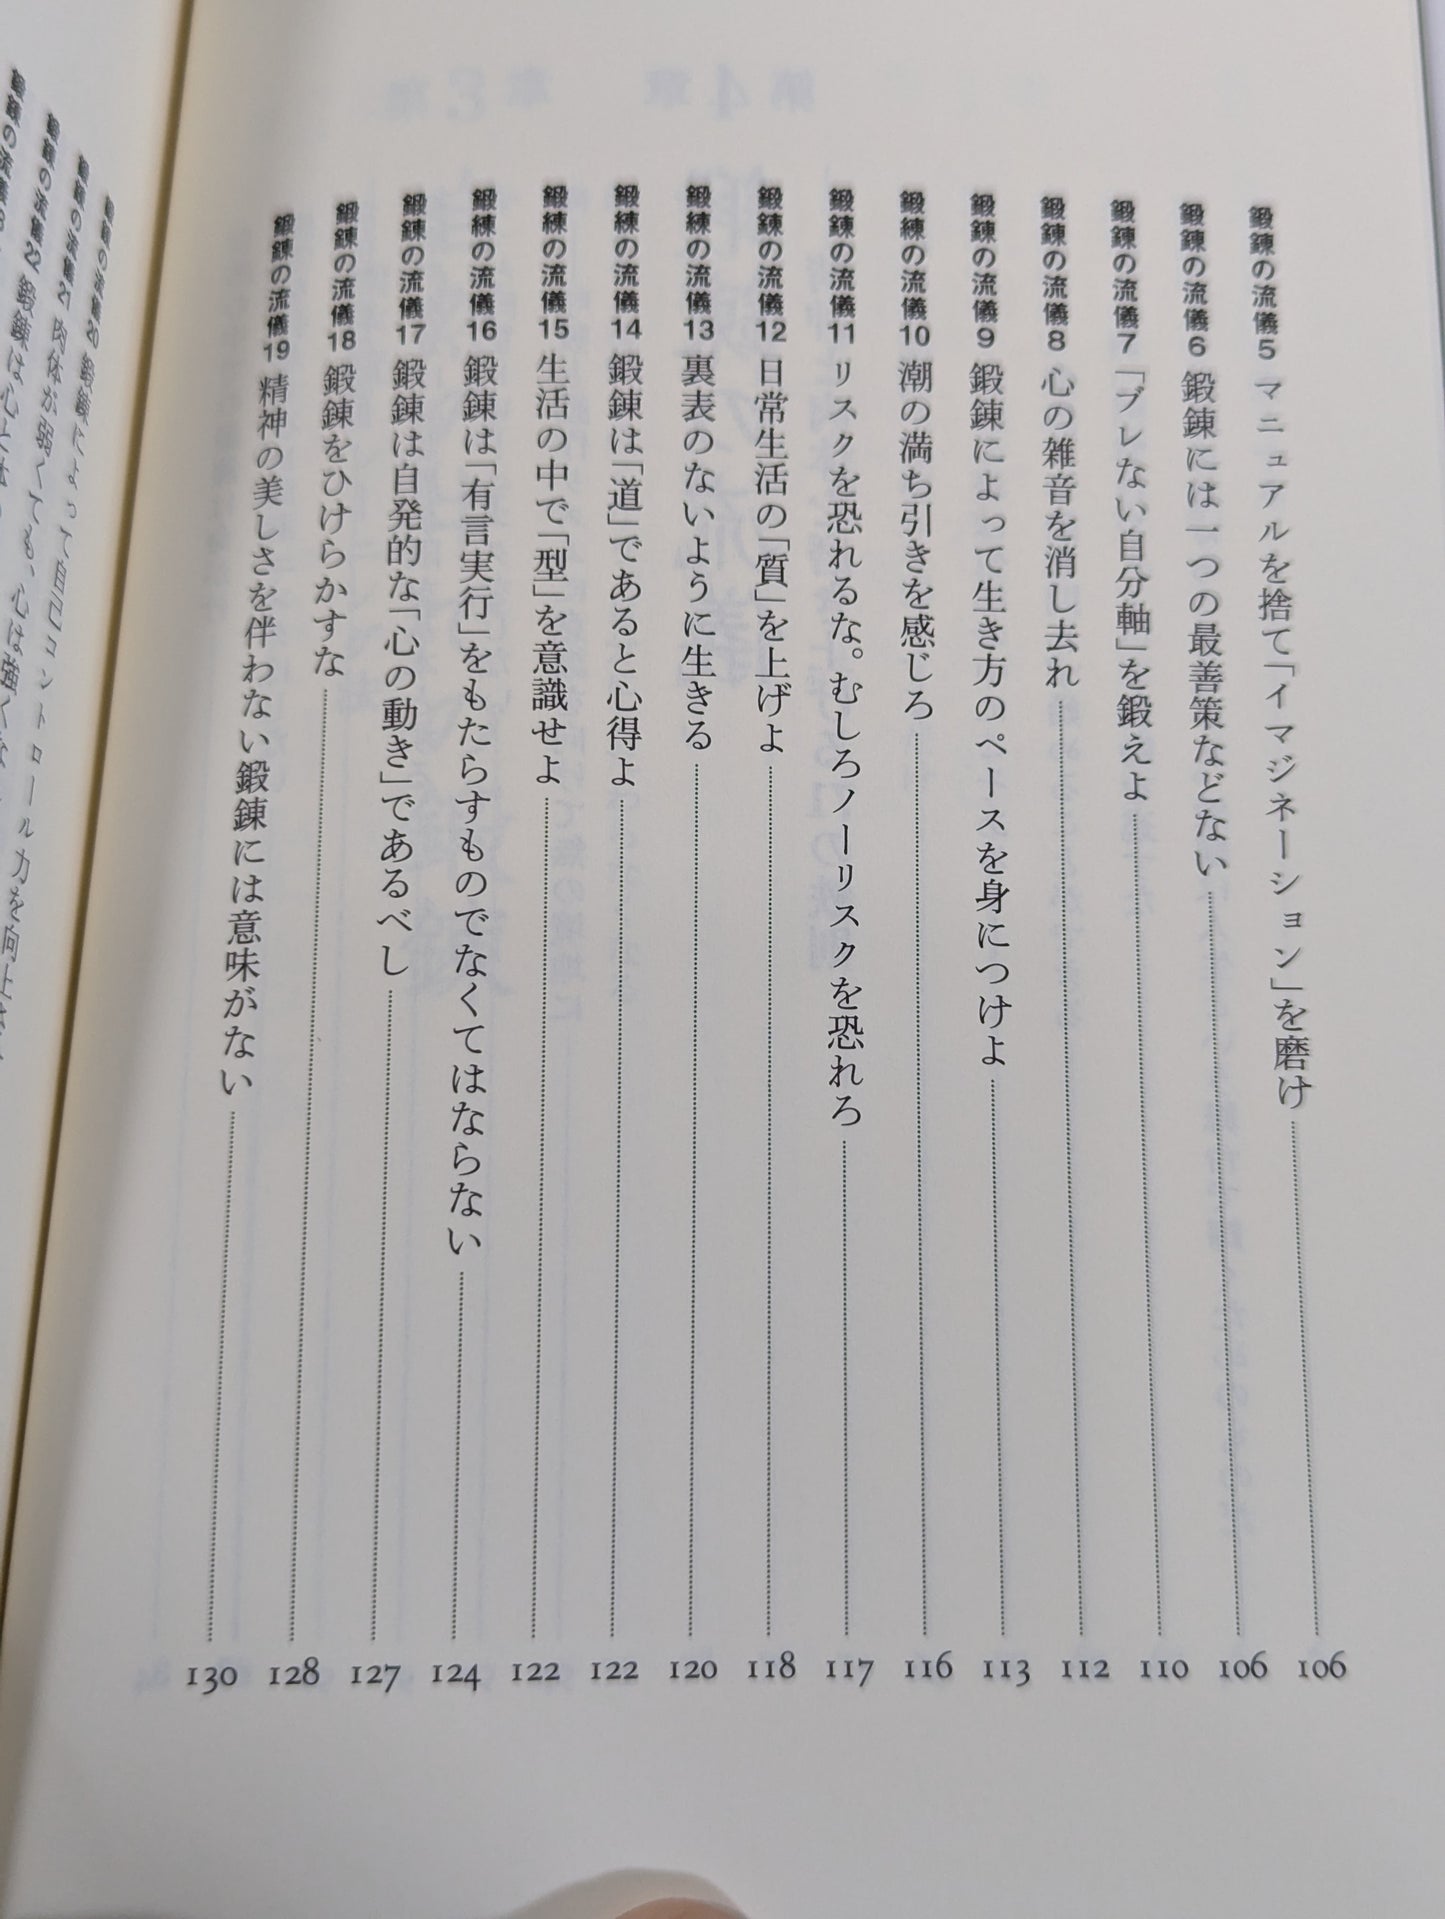 鍛錬の流儀5 マニュアルを捨て「イマジネーション」を磨け 106
鍛錬の流儀6 鍛錬には一つの最善策などない 106
鍛錬の流儀7 「ブレない自分軸」を鍛えよ 110
鍛錬の流儀8 心の雑音を消し去れ 112
鍛錬の流儀9 鍛錬によって生き方のペースを身につけよ 113
鍛錬の流儀10 潮の満ち引きを感じろ 116
鍛錬の流儀11 リスクを恐れるな。むしろノーリスクを恐れろ 117
鍛錬の流儀12 日常生活の「質」を上げよ 118
鍛錬の流儀13 裏表のないように生きる 120
鍛錬の流儀14 鍛錬は「道」であると心得よ 122
鍛錬の流儀15 生活の中で「型」を意識せよ 122
鍛錬の流儀16 鍛錬は「有言実行」をもたらすものでなくてはならない 124
鍛錬の流儀17 鍛錬は自発的な「心の動き」であるべし 127
鍛錬の流儀18 鍛錬をひけらかすな 128
鍛錬の流儀19 精神の美しさを伴わない鍛錬には意味がない 130
鍛錬の流儀20 鍛錬によって自己コントロール力を向上
鍛錬の流儀21 肉体が弱くても、心は強く
鍛錬の流儀22 鍛錬は心と
鍛錬の流儀